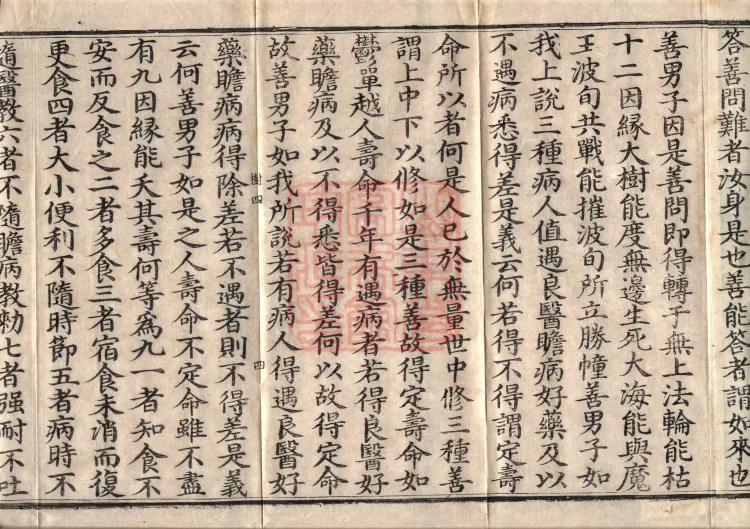 答善問難者汝身是也善能答者謂如來也
善男子因是善問即得轉于無上法輪能枯
十二因縁大樹能度無邊生死大海能與魔
王波旬共戰能摧波旬所立勝幢善男子如
我上說三種病人值遇良醫瞻病好藥及以
不遇病悉得差是義云何若得不得謂定壽
命所以者何是人已於無量世中修三種善
謂上中下以修如是三種善故得定壽命如
欝單越人壽命千年有遇病者若得良醫好
藥瞻病及以不得悉皆得差何以故得定命
故善男子如我所說若有病人得遇良醫好
藥瞻病病得除差若不遇者則不得差是義
云何善男子如是之人壽命不定命雖不盡
有九因縁能夭其壽何等為九一者知食不
安而反食之二者多食三者宿食未消而復
更食四者大小便利不隨時節五者病時不
隨醫教六者不隨瞻病教勑七者强耐不吐